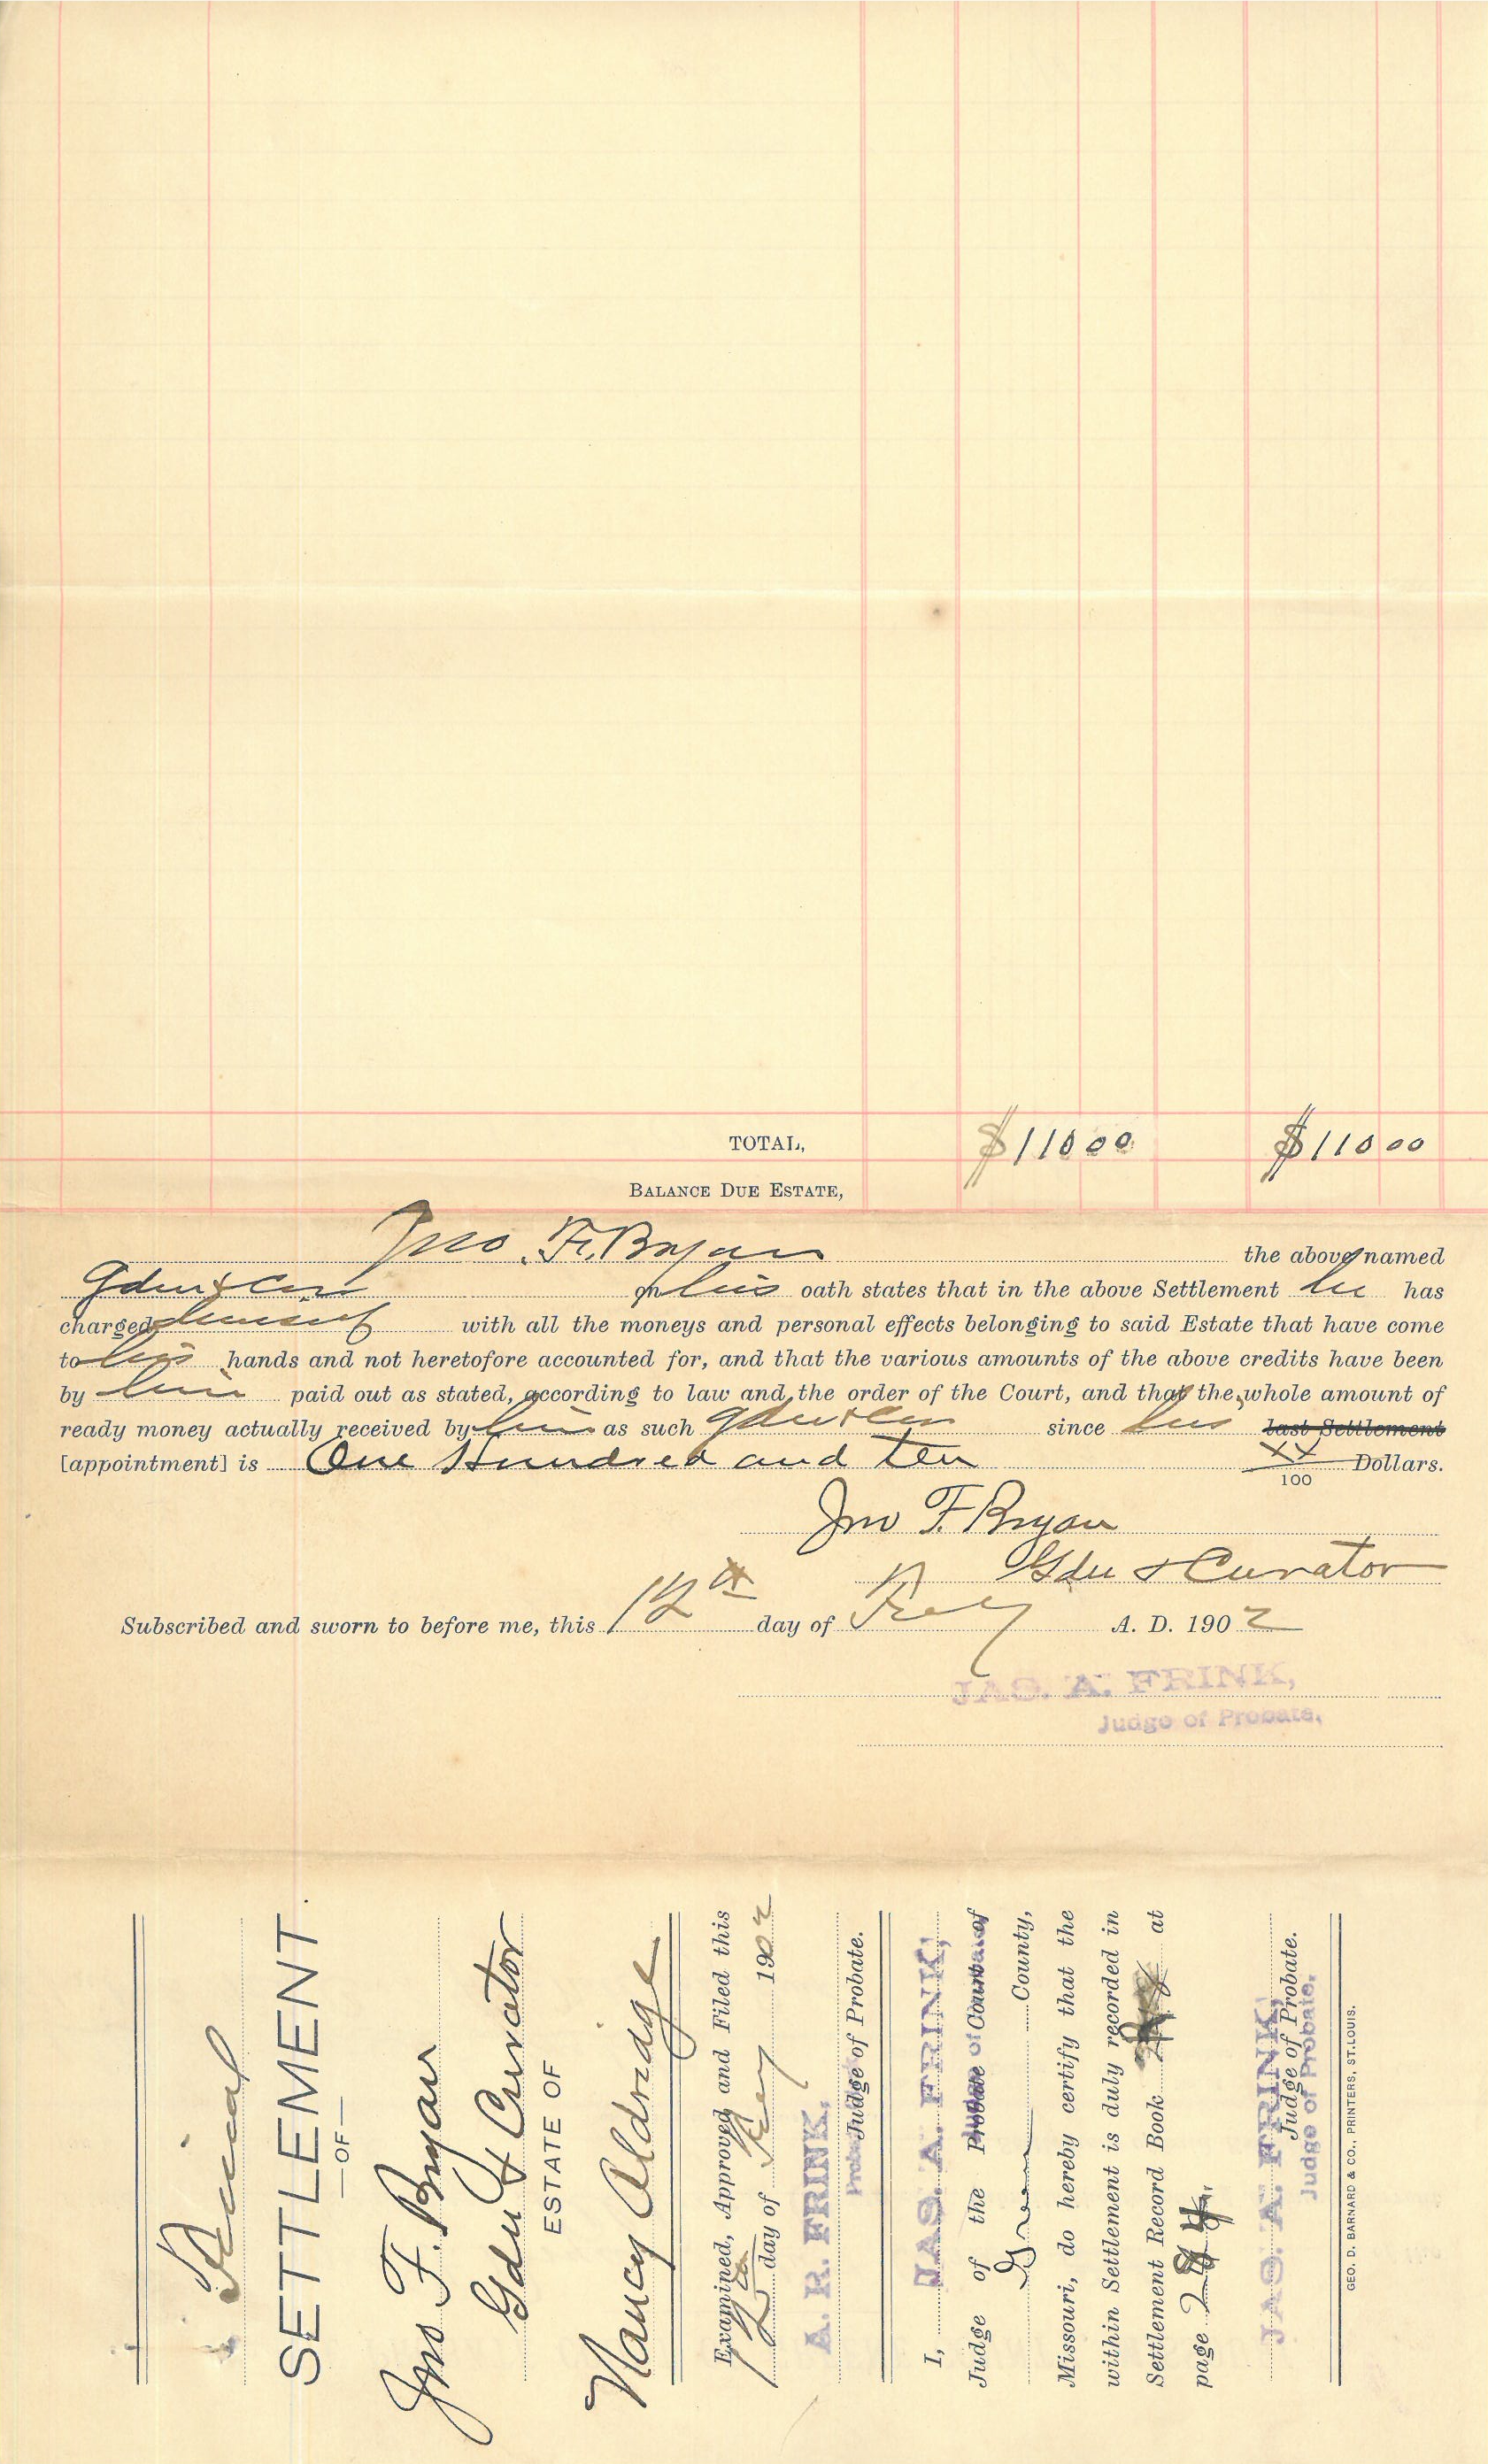 TOTAL, $110 00 $110 00
BALANCE DUE ESTATE,
Jno. F. Bryan the above named
Gdn & Cur on his oath states that in the above Settlement he has
charged himself with all the moneys and personal effects belonging to said Estate that have come
to his hands and not heretofore accounted for, and that the various amounts of the above credits have been
by him paid out as stated, according to law and the order of the Court, and that the whole amount of
ready money actually received by him as such gdn & cur since his last Settlement
[appointment] is One Hundred and ten XX/100 Dollars.
Jno F. Bryan
Gdn & Curator
Subscribed and sworn to before me, this 12th day of Feby A. D. 1902
JAS. A. FRINK,
Judge of Probate.
Final
SETTLEMENT
—OF—
Jno F. Bryan
Gdn & Curator
ESTATE OF
Nancy Aldridge
Examined, Approved and Filed this
12th day of Feby 1902
A. R. FRINK,
Judge of Probate.
I, JAS. A. FRINK,
Judge of the Probate Court of
Green County,
Missouri, do hereby certify that the
within Settlement is duly recorded in
Settlement Record Book at
page 284.
JAS. A. FRINK,
Judge of Probate.
Judge of Probate.
GEO. D. BARNARD & CO., PRINTERS, ST. LOUIS.